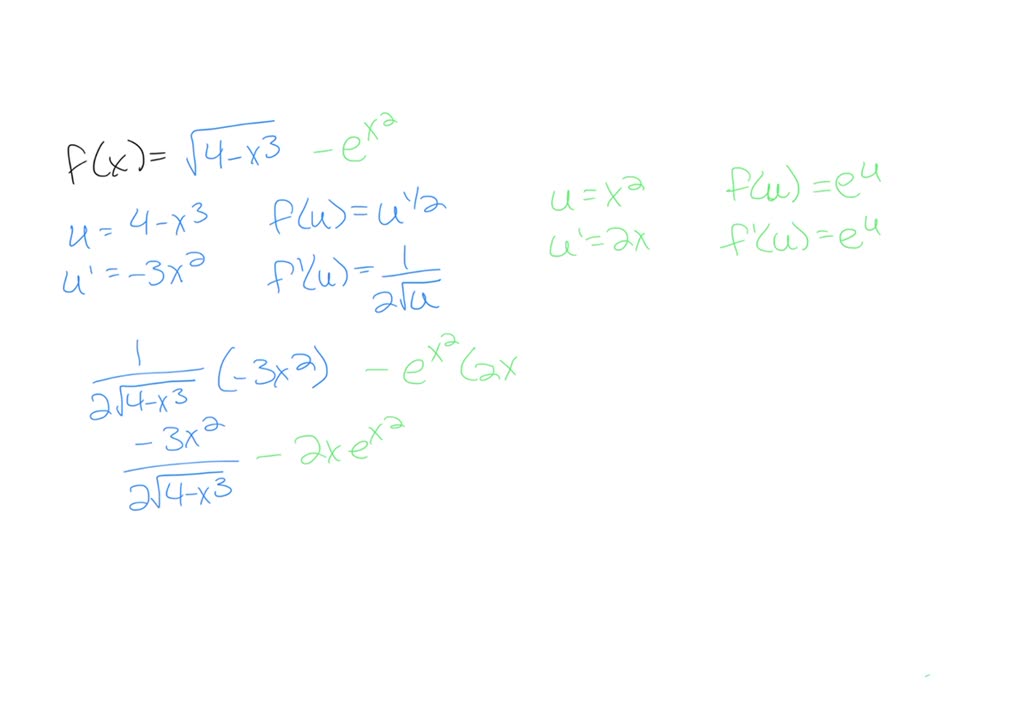 f(x) = √(4-x³) - e^(x²)
u = 4-x³ f(u) = u^(1/2)
u' = -3x² f'(u) = 1/(2√u)
u = x² f(u) = e^u
u' = 2x f'(u) = e^u
1/(2√(4-x³)) (-3x²) - e^(x²) (2x
-3x²/(2√(4-x³)) - 2xe^(x²)